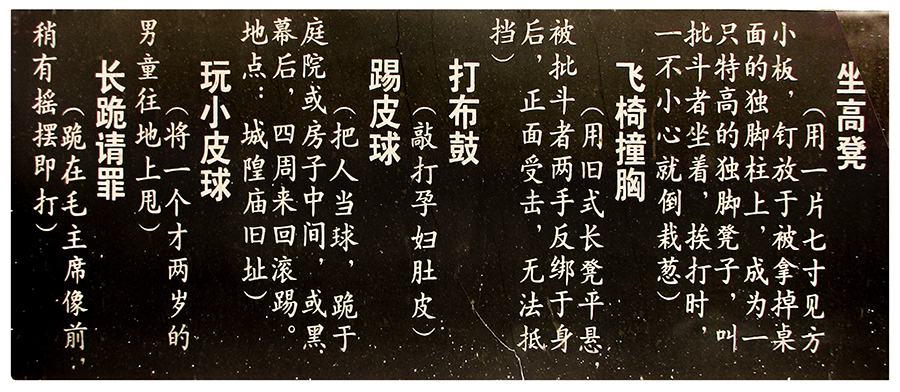 坐高凳
（用一片七寸见方
小板，钉放于被拿掉桌
面的独脚柱上，成为一
只特高的独脚凳子，叫
批斗者坐着，挨打时，
一不小心就倒栽葱）
飞椅撞胸
（用旧式长凳平悬，
被批斗者两手反绑于身
后，正面受击，无法抵
挡）
打布鼓
（敲打孕妇肚皮）
踢皮球
（把人当球，跪于
庭院或房子中间，或黑
幕后，四周来回滚踢。
地点：城隍庙旧址）
玩小皮球
（将一个才两岁的
男童往地上甩）
长跪请罪
（跪在毛主席像前，
稍有摇摆即打）